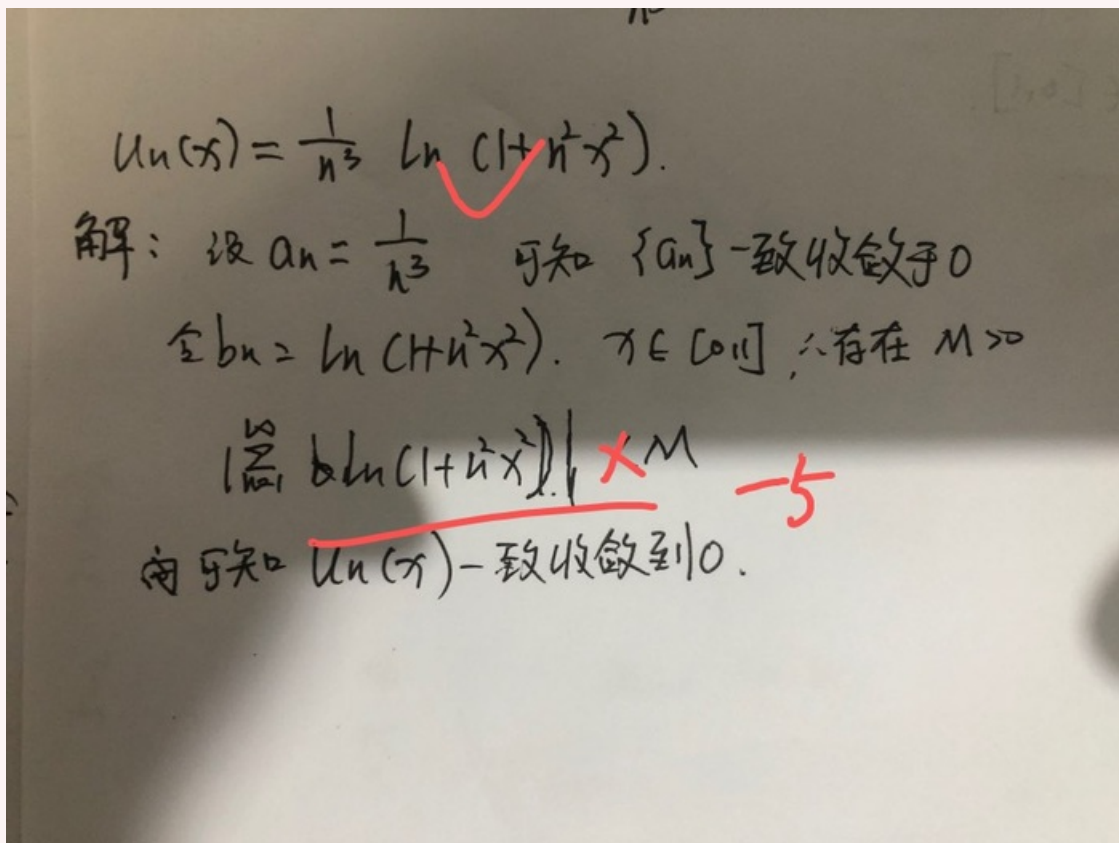 Un(x) = 1/n³ ln (1+n²x²).
解：设 an = 1/n³ 可知 {an} 一致收敛于0
令 bn = ln (1+n²x²). x∈[0,1] ∴存在 M>0
|∑_{n=1}^{∞} ln(1+n²x²)| × M
-5
可知 Un(x) 一致收敛到0.